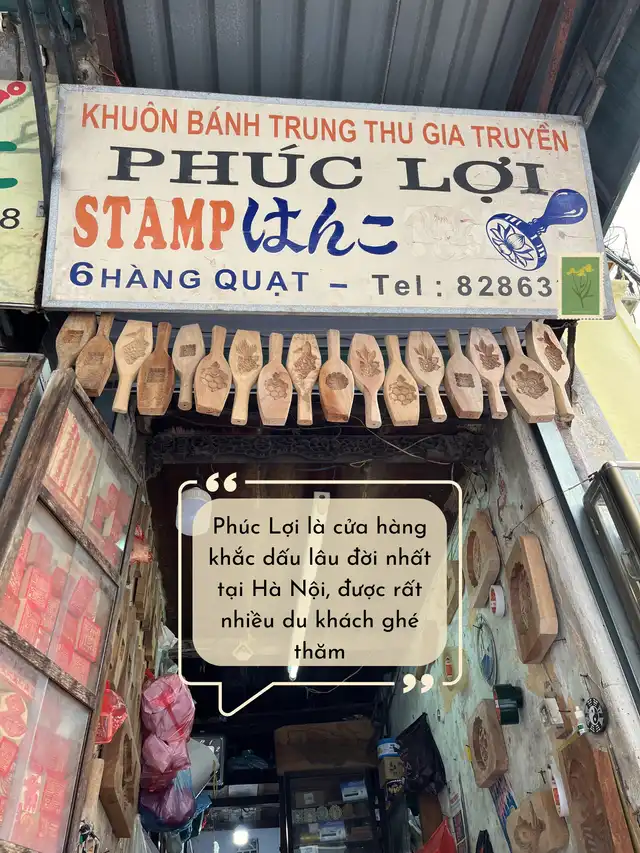 KHUÔN BÁNH TRUNG THU GIA TRUYỀN
PHÚC LỢI
STAMP はんこ
6 HÀNG QUẠT - Tel : 82863
8
Phúc Lợi là cửa hàng
khắc dấu lâu đời nhất
tại Hà Nội, được rất
nhiều du khách ghé
thăm